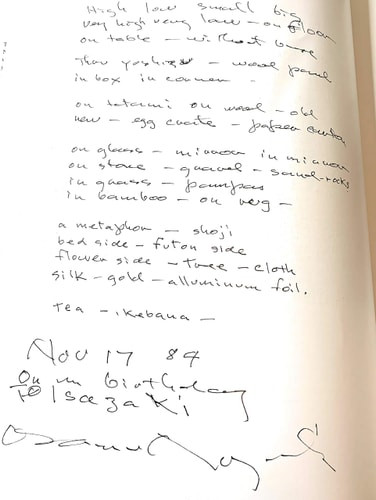 High low small big
very high very low - on floor
on table - without base
Thru yoshizu - wood panel
in box in corner -
on tatami on wood - old
new - egg crate - paper
on glass - mirror in mirror
on stone - gravel - sand-rocks
in grass - pampas
in bamboo - on rug -
a metaphor - shoji
bed side - futon side
flower side - tree - cloth
silk - gold - alluminum foil.
Tea - ikebana -
Nov 17 84
On m birthday
TO Isozaki
Isamu Noguchi